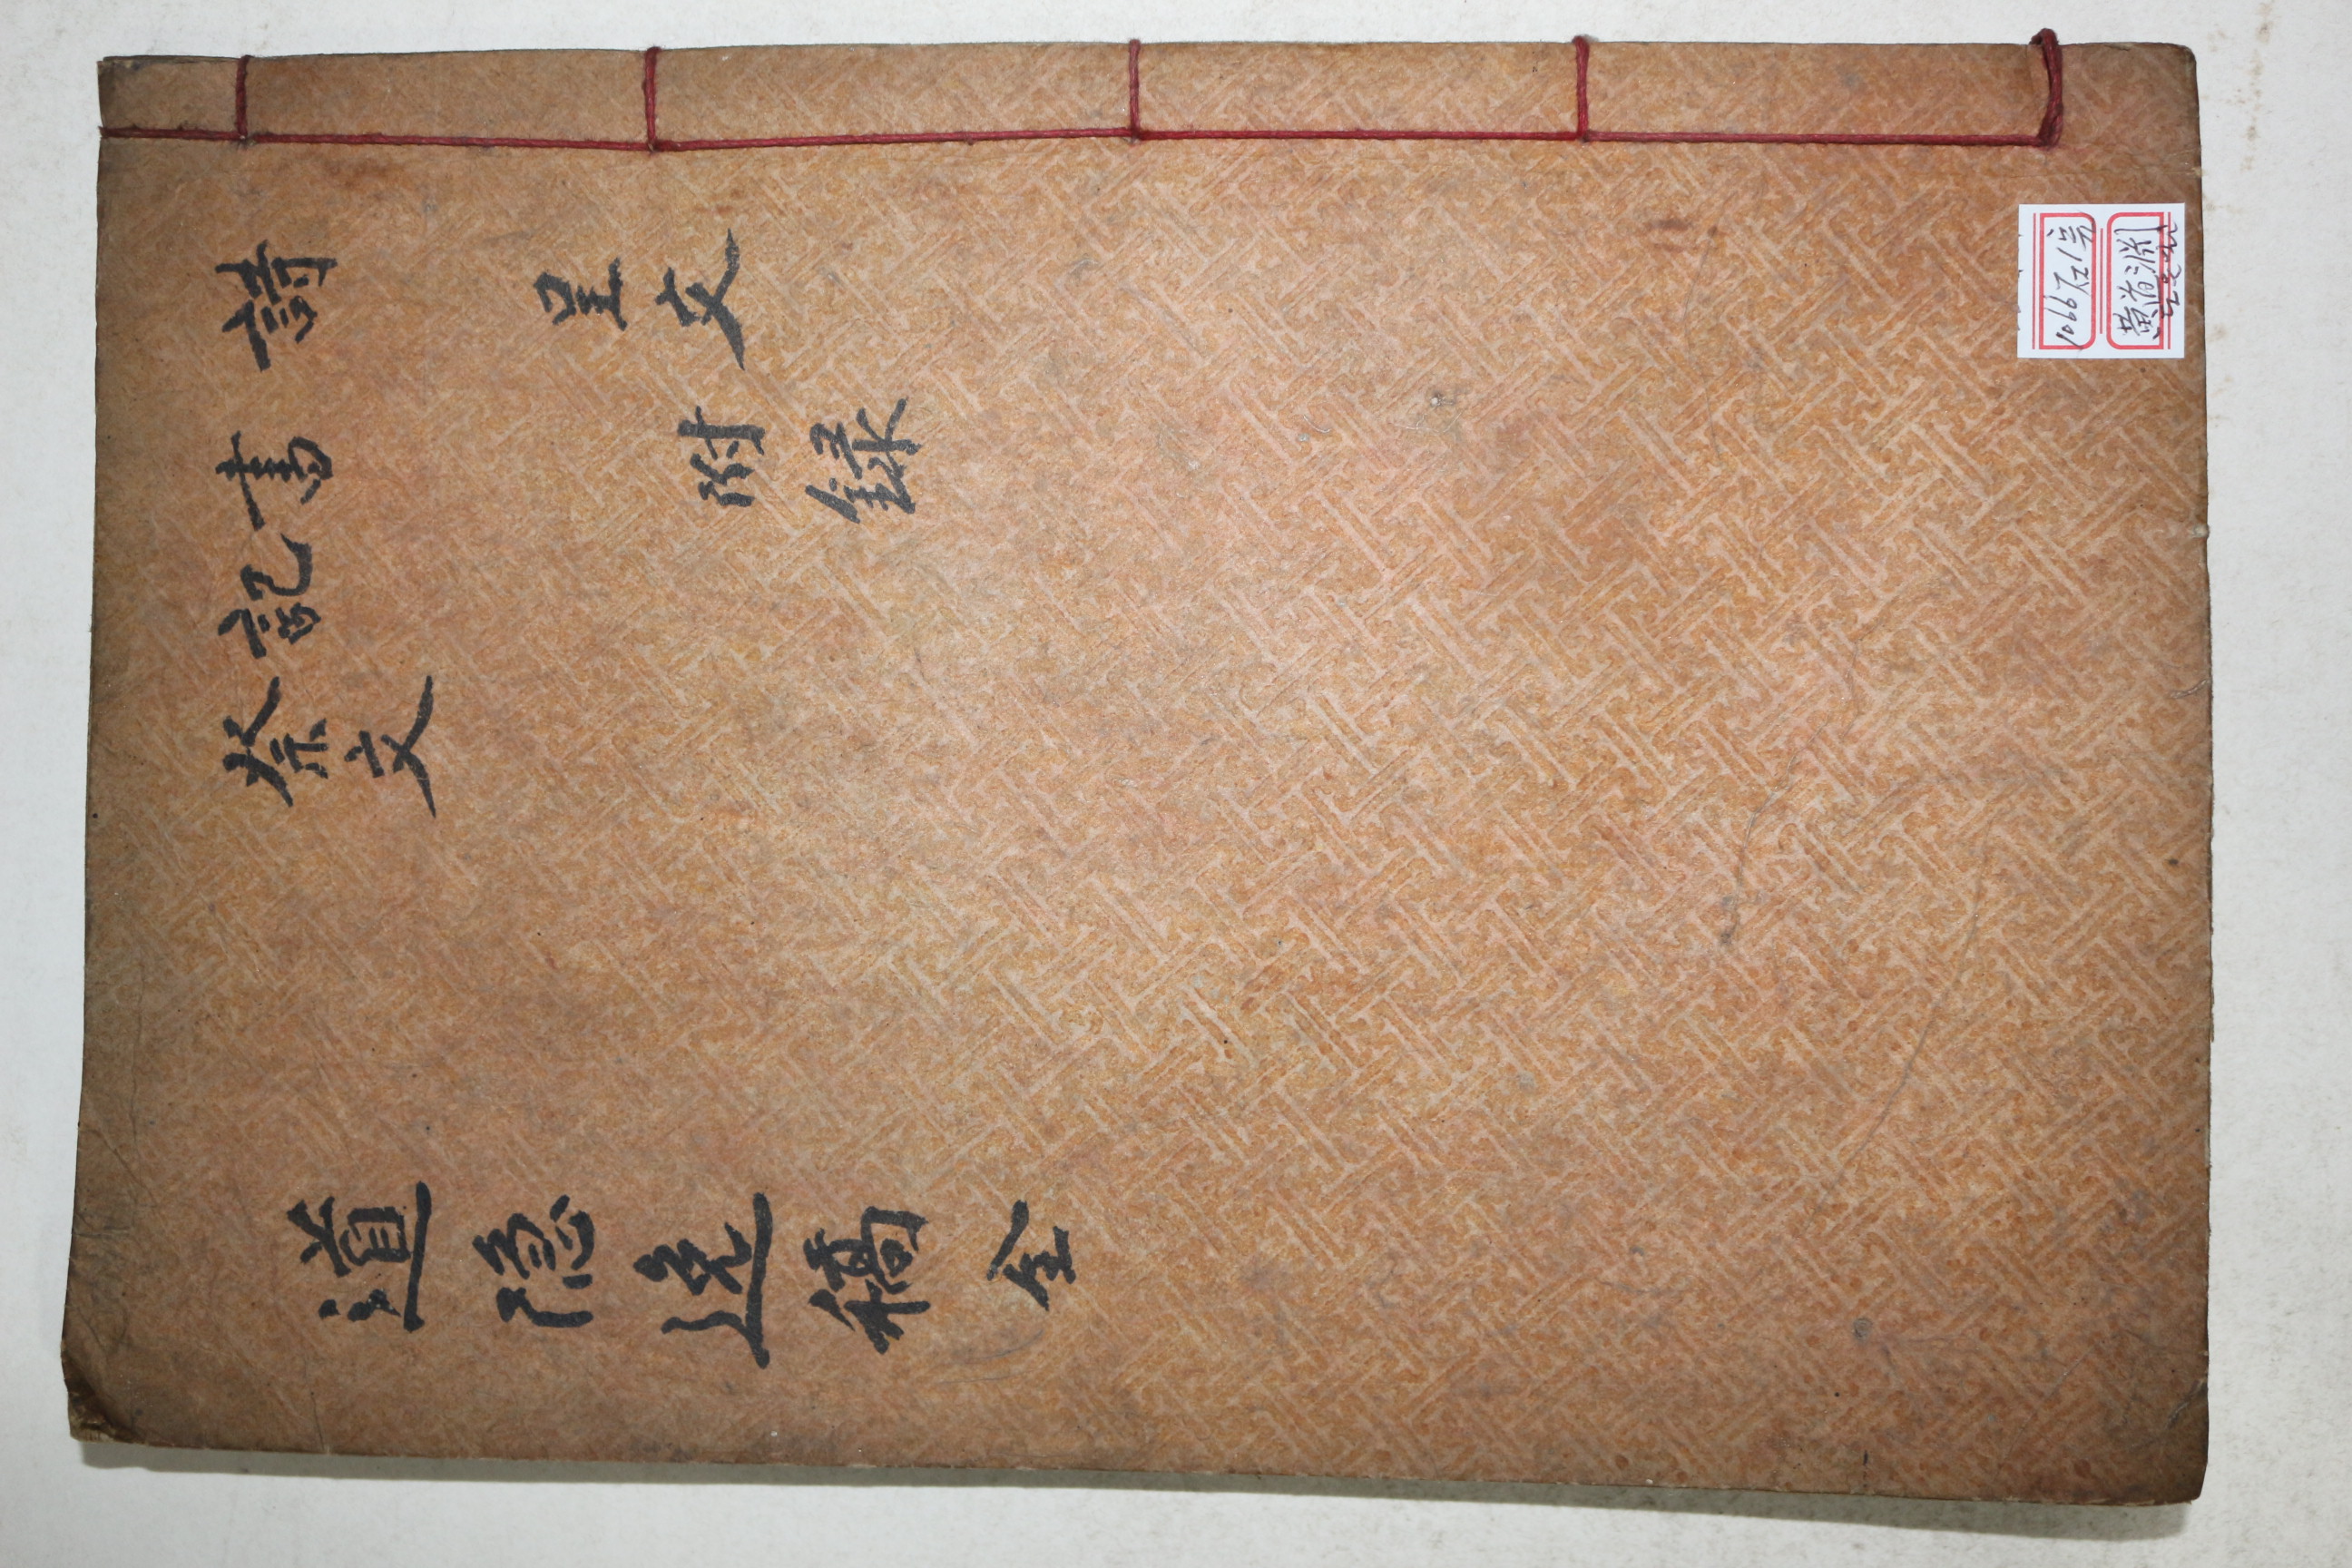 詩
書
記
祭文
呈文
附録
道隐逸稿 全
1066 石1完
黃道淵